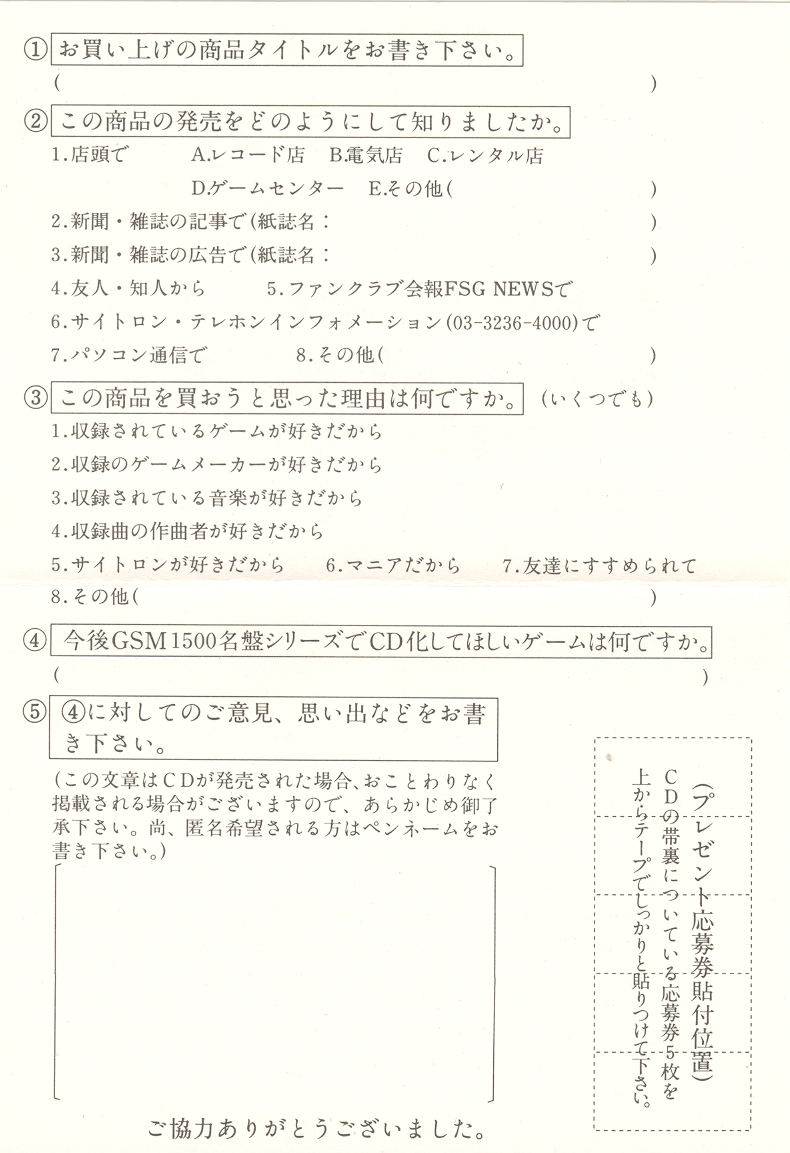 ①お買い上げの商品タイトルをお書き下さい。
(　　　)
②この商品の発売をどのようにして知りましたか。
1.店頭で　A.レコード店　B.電気店　C.レンタル店
D.ゲームセンター　E.その他(　　　)
2.新聞・雑誌の記事で(紙誌名：　　　)
3.新聞・雑誌の広告で(紙誌名：　　　)
4.友人・知人から　5.ファンクラブ会報FSG NEWSで
6.サイトロン・テレホンインフォメーション(03-3236-4000)で
7.パソコン通信で　8.その他(　　　)
③この商品を買おうと思った理由は何ですか。(いくつでも)
1.収録されているゲームが好きだから
2.収録のゲームメーカーが好きだから
3.収録されている音楽が好きだから
4.収録曲の作曲者が好きだから
5.サイトロンが好きだから　6.マニアだから　7.友達にすすめられて
8.その他(　　　)
④今後GSM1500名盤シリーズでCD化してほしいゲームは何ですか。
(　　　)
⑤④に対してのご意見、思い出などをお書
き下さい。
(この文章はCDが発売された場合、おことわりなく
掲載される場合がございますので、あらかじめ御了
承下さい。尚、匿名希望される方はペンネームをお
書き下さい。)
(プレゼント応募券貼付位置)
CDの帯裏についている応募券5枚を
上からテープでしっかりと貼りつけて下さい。
ご協力ありがとうございました。